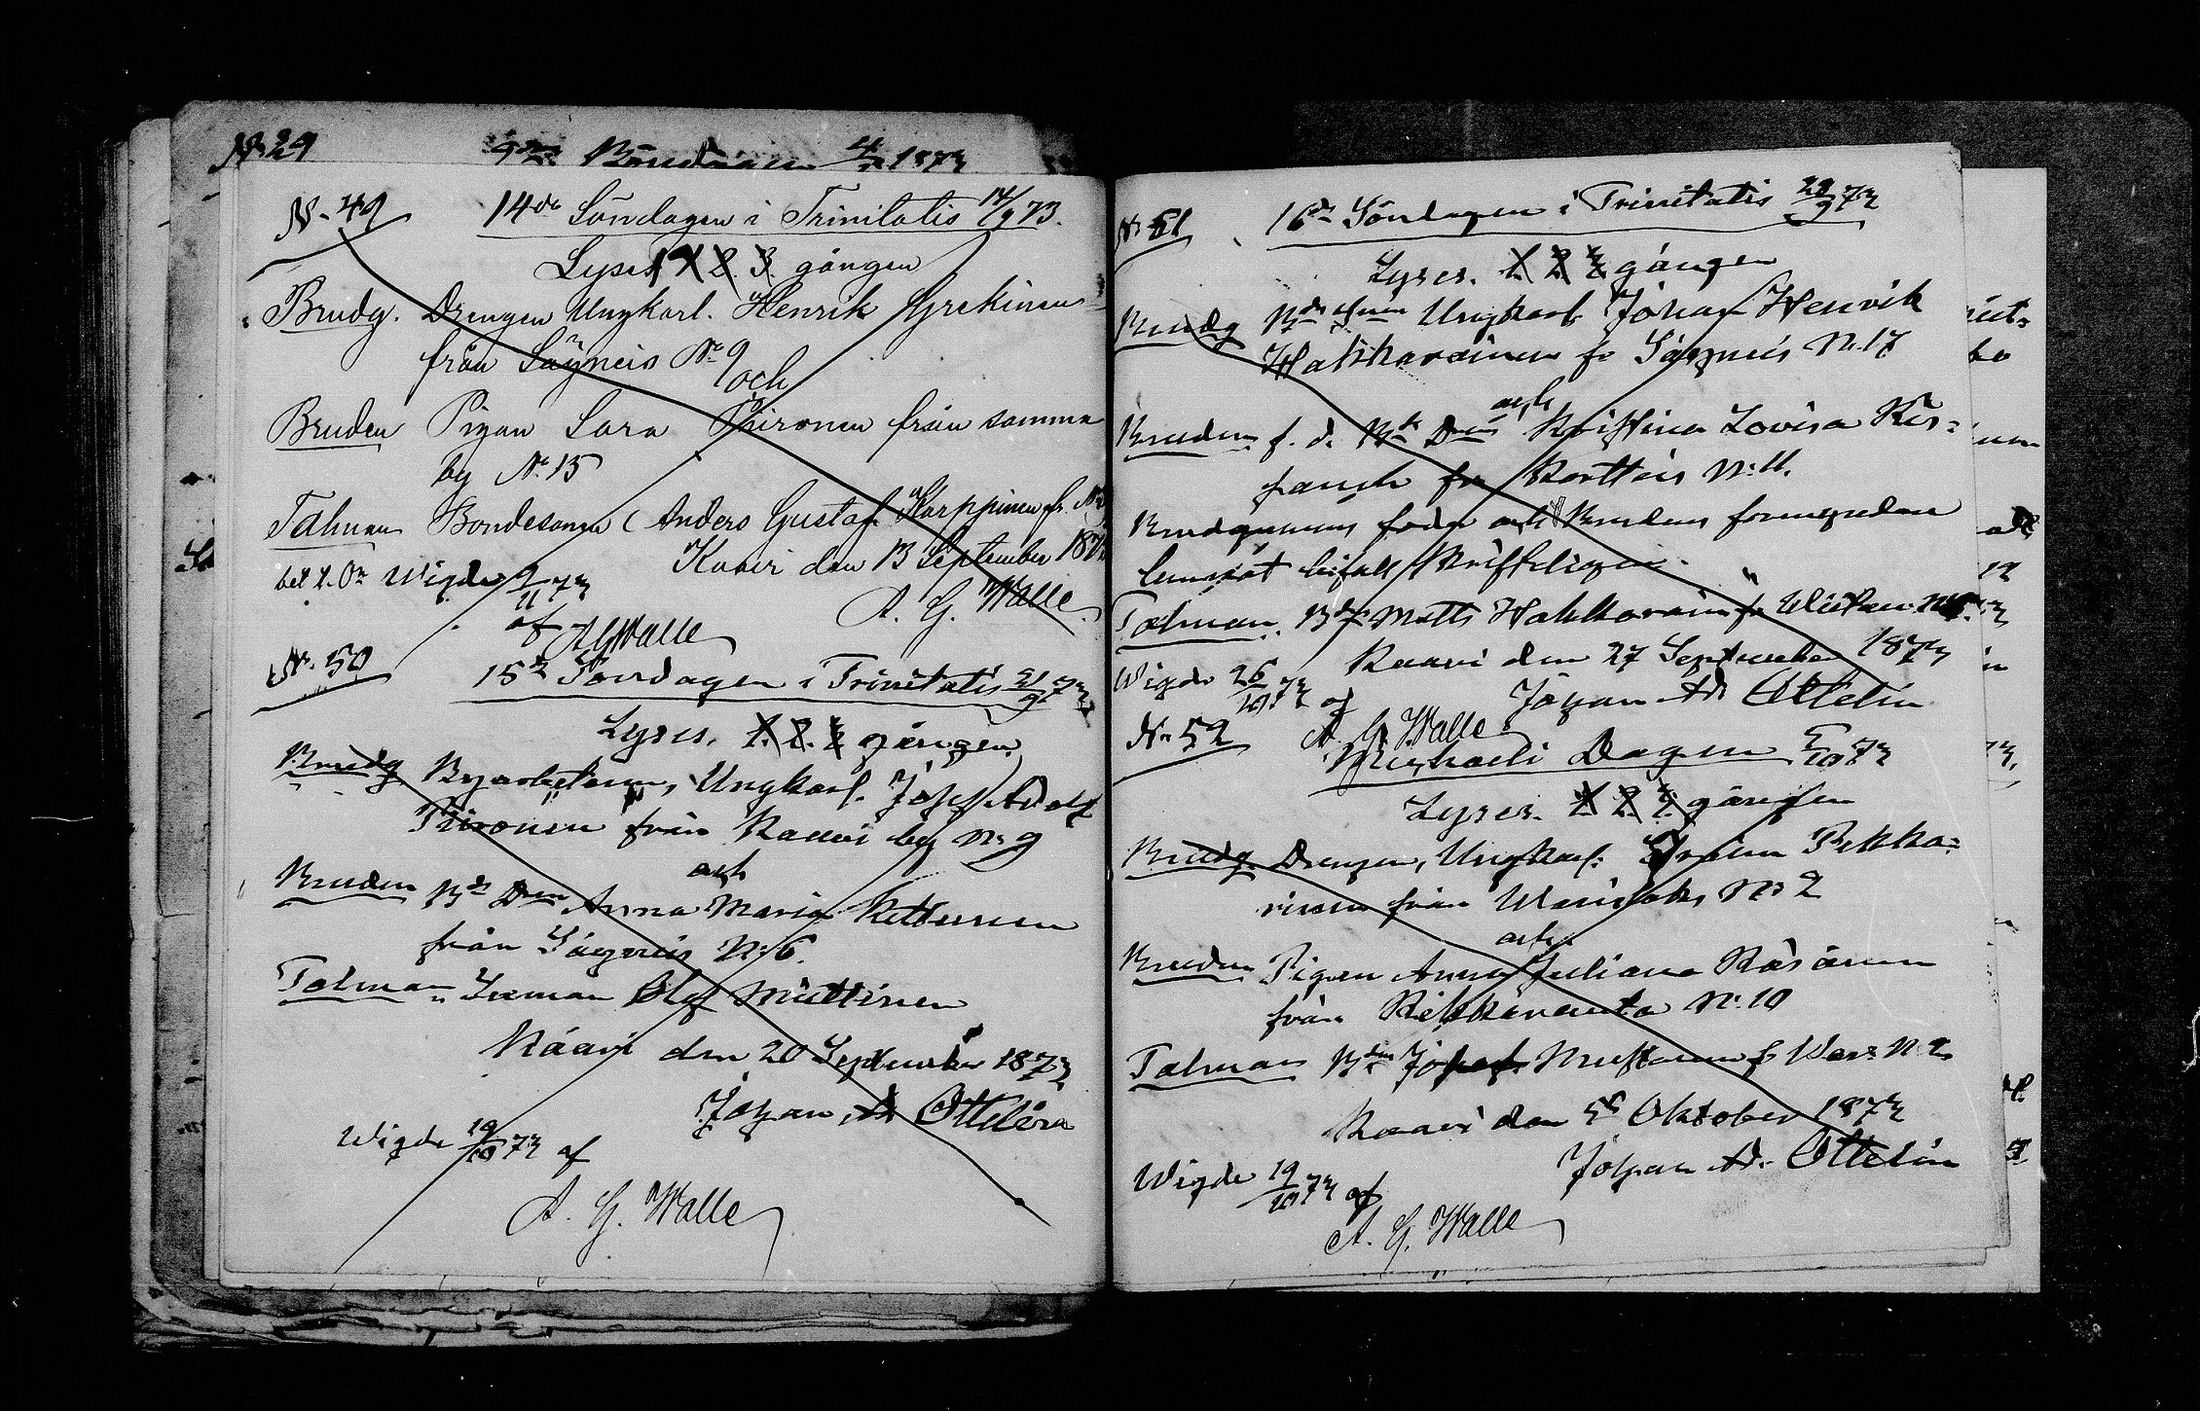 N:29 9de Böndagen 1873
N. 49 14de Söndagen i Trinitatis 14/9 73.
Lyses 1 2. 3. gången
Brudg. Drengen Ungkarl. Henrik
från Säyneis No 9
och
Bruden Pigan Sara Piironen från samma
by No. 15
Talman Bondesonen Anders Gustaf Karppinen fr. No
Kaavi den 13 September 187
bet Wigde 9/11 73
A. G. Walle
af
AGWalle
No. 50 15de Söndagen i Trinitatis 21/9 73
Lyses. 1. 2. 3 gången
Brudg Ungkarl. Adolf
Piironen från Kaavi by No 9
och
Bruden Bd Dren Anna Maria Kettunen
från Säyneis No 6.
Talman Olof Miettinen
Kaavi den 20 September 1873
Johan Ad Ottelin
Wigde 19/10 73 af
A. G. Walle
No 51 16de Söndagen i Trinitatis 28/9 73
Lyses. 1. 2 3 gången
Brudg Ungkarl Johan Henrik
Hakkarainen fr Säyneis No 17
och
Bruden f. d. Bd Dren Kristina Lovisa Kis=
fr Kortteis No 11.
Brudgummens fader och Brudens
lemnat bifall skriftligen.
Talman. Bd Matts Hakkarainen fr
Kaavi den 27 September 1873
Wigde 26/10 73 af
Johan Ad Ottelin
A. G. Walle
No 52
Michaeli Dagen 5/10 73
Lyses. 1 2. 3. gången
Brudg Drengen, Ungkarl. Pekka=
rinen från No 2
och
Bruden Pigan Anna Juliana Räsänen
från Rikkaranta No. 10
Talman Bden Johan fr No 2
Kaavi den 5te Oktober 1873
Johan Ad. Ottelin
Wigde 19/10 73 af
A. G. Walle